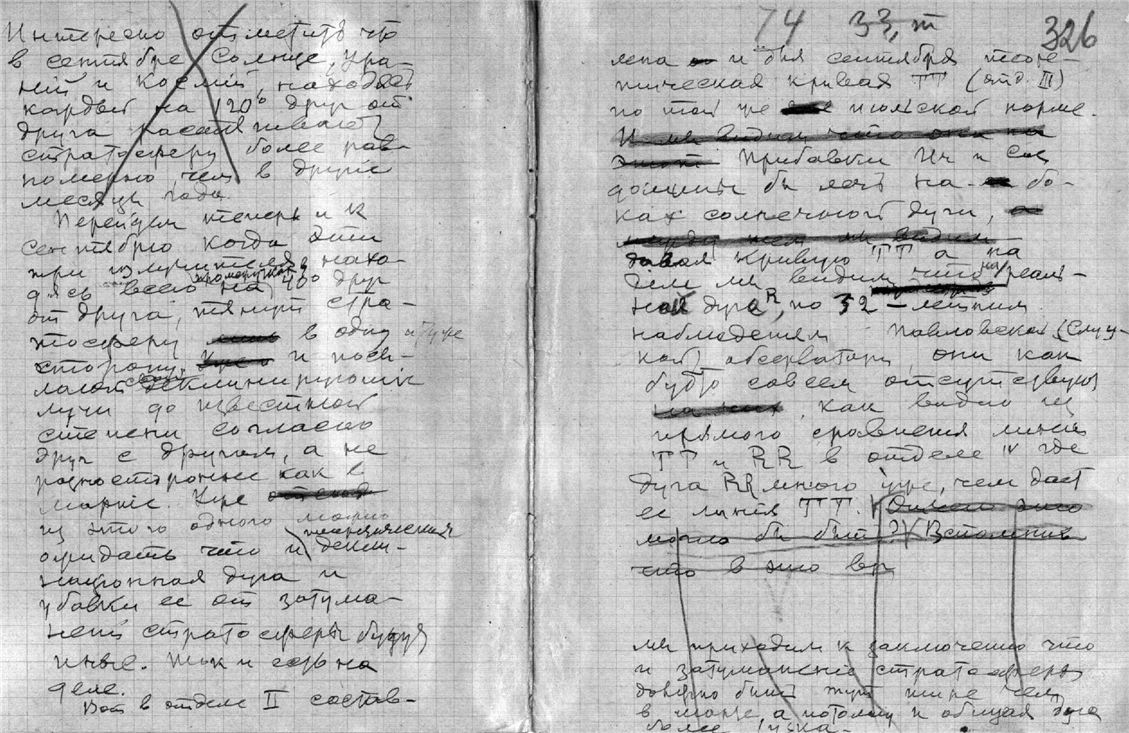 Интересно отметить что
в сентябре Солнце, Ура-
ний и Космий, находясь
каждый на 120° друг от
друга
стратосферу более рав-
номерно чем в другие
месяцы года.
Перейдем теперь и к
сентябрю когда эти
три излучителя, нахо-
дясь всего на 40° друг
от друга, тянут стра-
тосферу в одну и туже
сторону, и посы-
лают свои деклинирующие
лучи до известной
степени согласно
друг с другом, а не
разносторонне как в
марте. Уже
из этого одного можно
ожидать что и теоретическая
декли-
национная дуга и
убавки ее от затума-
нений стратосферы будут
иные. Так и есть на
деле.
Вот в отделе II состав-
74 33, т 326
лена и для сентября теоре-
тическая кривая TT (отд. III)
по той же июльской норме.
И мы видим что они на
Прибавки Ич и Сац
должны бы лечь на бо-
ках солнечной дуги,
давая кривую TT а на
деле мы видим что на реаль-
ной дуге R, по 32-летним
наблюдениям Павловской (Слуц-
кой) обсерватории, они как
будто совсем отсутствуют,
как видно из
прямого сравнения линий
TT и RR в отделе IV где
дуга RR много уже, чем дает
ее линия TT. Однако это
могло бы быть Вспомнив
что в это вр
мы приходим к заключению что
и затуманение стратосферы
должно быть тут шире чем
в марте, а потому и общая дуга
более узка.